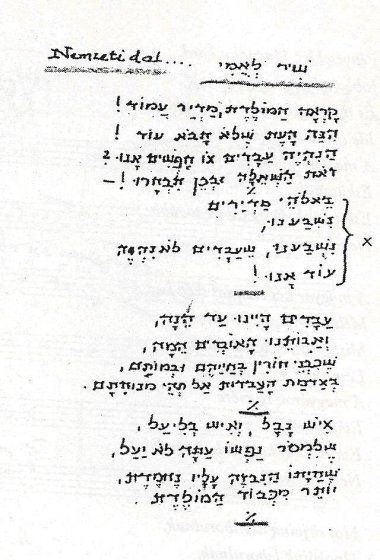 Nemzeti dal....
שִׁיר לְאֻמִּי
קָרְאָה הַמּוֹלֶדֶת, מַדְיָר עֲמוֹד!
הִנֵּה הָעֵת שֶׁלֹּא תָּבֹא עוֹד!
הֲנִהְיֶה עֲבָדִים אוֹ חָפְשִׁים אָנוּ ?
זֹאת הַשְּׁאֵלָה וּבְכֵן תִּבְחָרוּ! –
%
בֵּאלֹהֵי מַדְיָרִים
נִשְׁבַּעְנוּ,
נִשְׁבַּעְנוּ, שֶׁעֲבָדִים לֹא נִהְיֶה
עוֹד אָנוּ!
x
עֲבָדִים הָיִינוּ עַד הֵנָּה,
וַאֲבוֹתֵינוּ הָאוֹבְדִים הֵמָּה,
שֶׁכִּבְנֵי חוֹרִין בְּחַיֵּיהֶם וּבְמוֹתָם,
בְּאַדְמַת הָעַבְדוּת אַל תְּהִי מְנוּחָתָם.
%
אִישׁ נָבָל, וְאִישׁ בְּלִיַּעַל,
שֶׁלִּמְסֹר נַפְשׁוֹ עַתָּה לֹא יַעַל,
שֶׁחַיָּתוֹ הַנִּבְזָה עָלָיו נֶחְמֶדֶת,
יוֹתֵר מִכְּבוֹד הַמּוֹלֶדֶת.
%